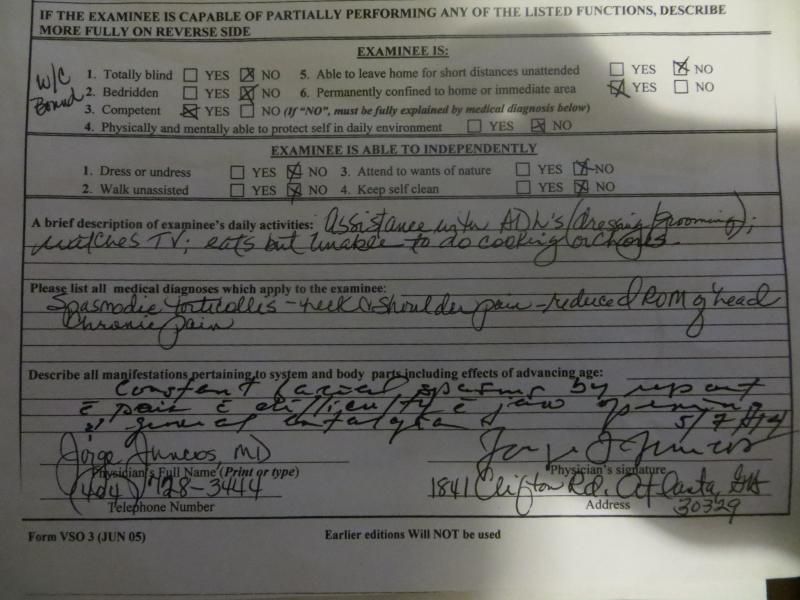 IF THE EXAMINEE IS CAPABLE OF PARTIALLY PERFORMING ANY OF THE LISTED FUNCTIONS, DESCRIBE
MORE FULLY ON REVERSE SIDE
EXAMINEE IS:
W/C Bound
1. Totally blind ☐ YES ☒ NO 5. Able to leave home for short distances unattended ☐ YES ☒ NO
2. Bedridden ☐ YES ☒ NO 6. Permanently confined to home or immediate area ☒ YES ☐ NO
3. Competent ☒ YES ☐ NO (If "NO", must be fully explained by medical diagnosis below)
4. Physically and mentally able to protect self in daily environment ☐ YES ☒ NO
EXAMINEE IS ABLE TO INDEPENDENTLY
1. Dress or undress ☐ YES ☒ NO 3. Attend to wants of nature ☐ YES ☒ NO
2. Walk unassisted ☐ YES ☒ NO 4. Keep self clean ☐ YES ☒ NO
A brief description of examinee's daily activities: Assistance with ADL's (dressing/grooming);
watches TV; eats but unable to do cooking or chores.
Please list all medical diagnoses which apply to the examinee:
Spasmodic torticollis - neck & shoulder pain - reduced ROM of head
Chronic pain
Describe all manifestations pertaining to system and body parts including effects of advancing age:
Constant facial spasms by report
c̄ pain c̄ difficulty c̄ jaw opening
general 5/7/14
Jorge Juncos, MD
Physician's Full Name (Print or type) Physician's signature
(404) 728-3444 1841 Clifton Rd. Atlanta, GA
Telephone Number Address 30329
Form VSO 3 (JUN 05) Earlier editions Will NOT be used